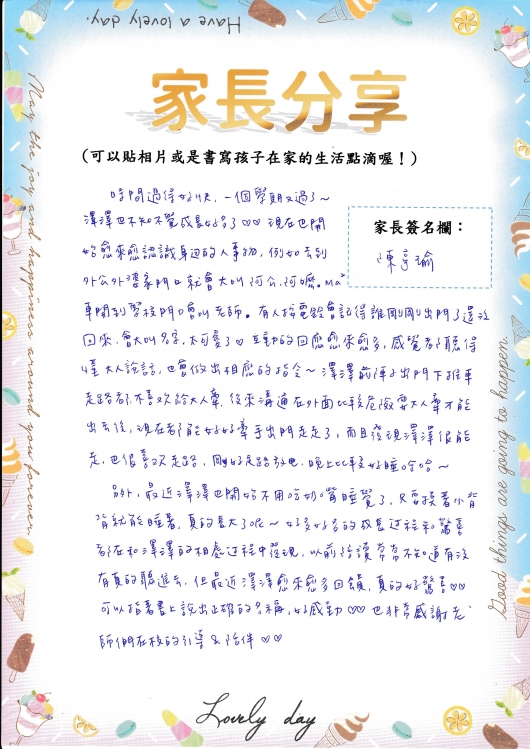 Have a lovely day.
May the joy and happiness around you forever.
Good things are going to happen.
家長分享
(可以貼相片或是書寫孩子在家的生活點滴喔！)
家長簽名欄：
陳亭瑜
時間過得好快，一個學期又過了~
澤澤也不知不覺成長好多了♡♡ 現在也開
始愈來愈認識身邊的人事物，例如去到
外公外婆家門口就會大叫阿公、阿嬤。
車開到學校門口會叫老師。有人按電鈴會記得誰剛剛出門了還沒
回來，會大叫名字，太可愛了♡ 互動的回應愈來愈多，感覺都聽得
懂大人說話，也會做出相應的指令~ 澤澤前陣子出門下推車
走路都不喜歡給大人牽，後來溝通在外面比較危險要大人牽才能
出去後，現在都能好好牽手出門走走了，而且發現澤澤很能
走，也很喜歡走路，剛好走路放電，晚上比較好睡哈哈~
另外，最近澤澤也開始不用吃奶嘴睡覺了，只要摸著小背
背就能睡著，真的長大了呢~ 好多好多的成長過程和驚喜
都在和澤澤的相處過程中發現，以前陪讀常常不知道有沒
有真的聽進去，但最近澤澤愈來愈多回饋，真的好驚喜♡♡
可以指著書上說出正確的名稱，好感動♡♡ 也非常感謝老
師們在校的引導&陪伴♡♡
Lovely day